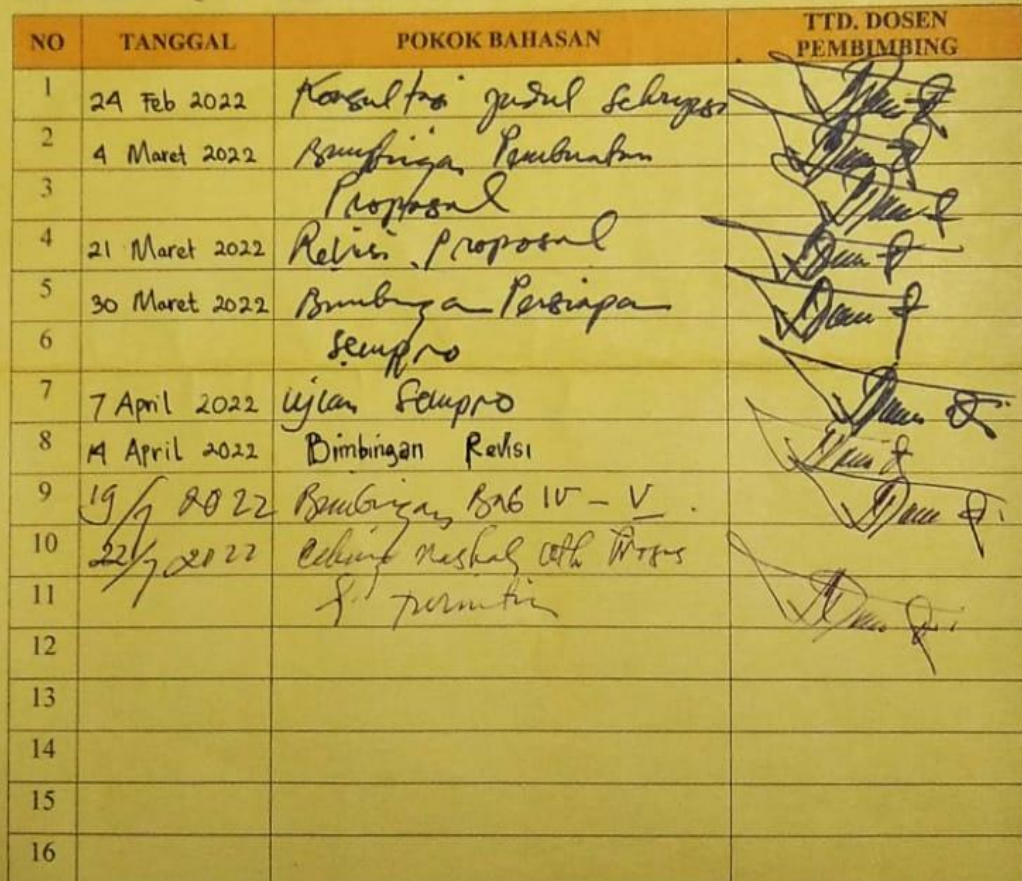 NO TANGGAL POKOK BAHASAN TTD. DOSEN PEMBIMBING
1 24 Feb 2022 Konsultasi judul Schripsi
2 4 Maret 2022 Bimbingan Pembuatan
3 Proposal
4 21 Maret 2022 Revisi Proposal
5 30 Maret 2022 Bimbingan Persiapan
6 sempro
7 7 April 2022 Ujian Sempro
8 14 April 2022 Bimbingan Revisi
9 19/7 2022 Bimbingan Bab IV - V.
10 22/7 2022 naskah
11
12
13
14
15
16